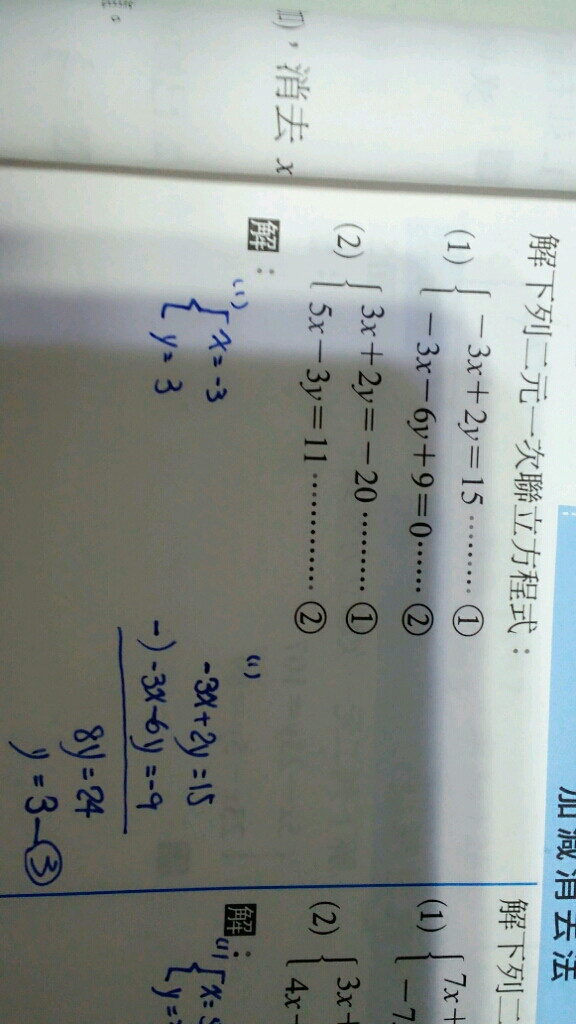 ，消去 x
加減消去法
解下列二元一次聯立方程式：
(1) { -3x+2y=15 ……… ①
-3x-6y+9=0 …… ②
(2) { 3x+2y=-20 ……… ①
5x-3y=11 ………… ②
解：
(1) { x=-3
y=3
(1) -3x+2y=15
-) -3x-6y=-9
8y=24
y=3-③
解下列二
(1) { 7x+
-7
(2) { 3x+
4x-
解：
(1) { x=
y=